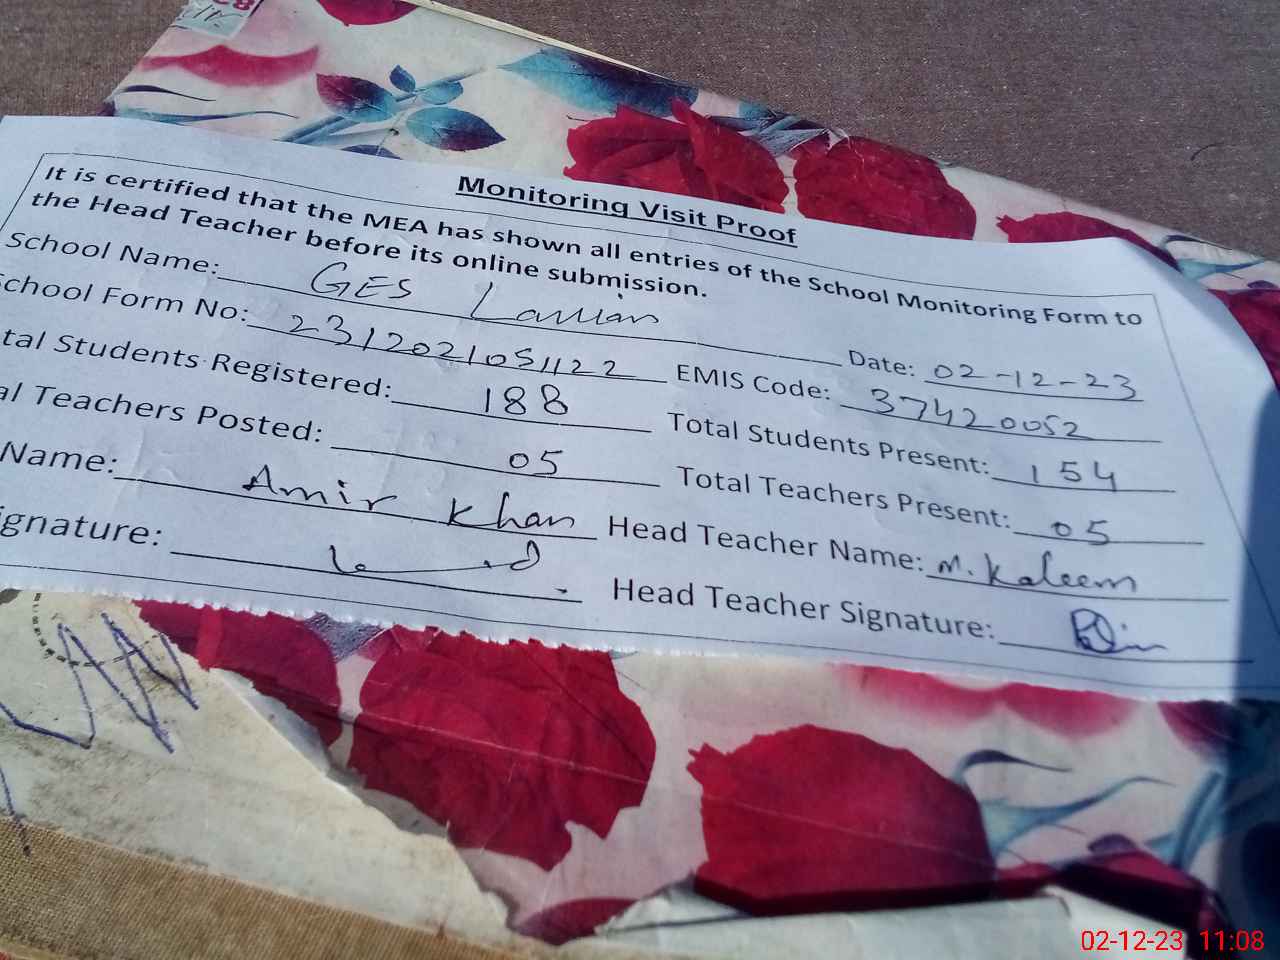 Monitoring Visit Proof
It is certified that the MEA has shown all entries of the School Monitoring Form to
the Head Teacher before its online submission.
School Name: GES Date: 02-12-23
School Form No: 2312021051122 EMIS Code: 37420052
tal Students Registered: 188 Total Students Present: 154
al Teachers Posted: 05 Total Teachers Present: 05
Name: Amir Khan Head Teacher Name: M. Kaleem
ignature: Head Teacher Signature:
02-12-23 11:08